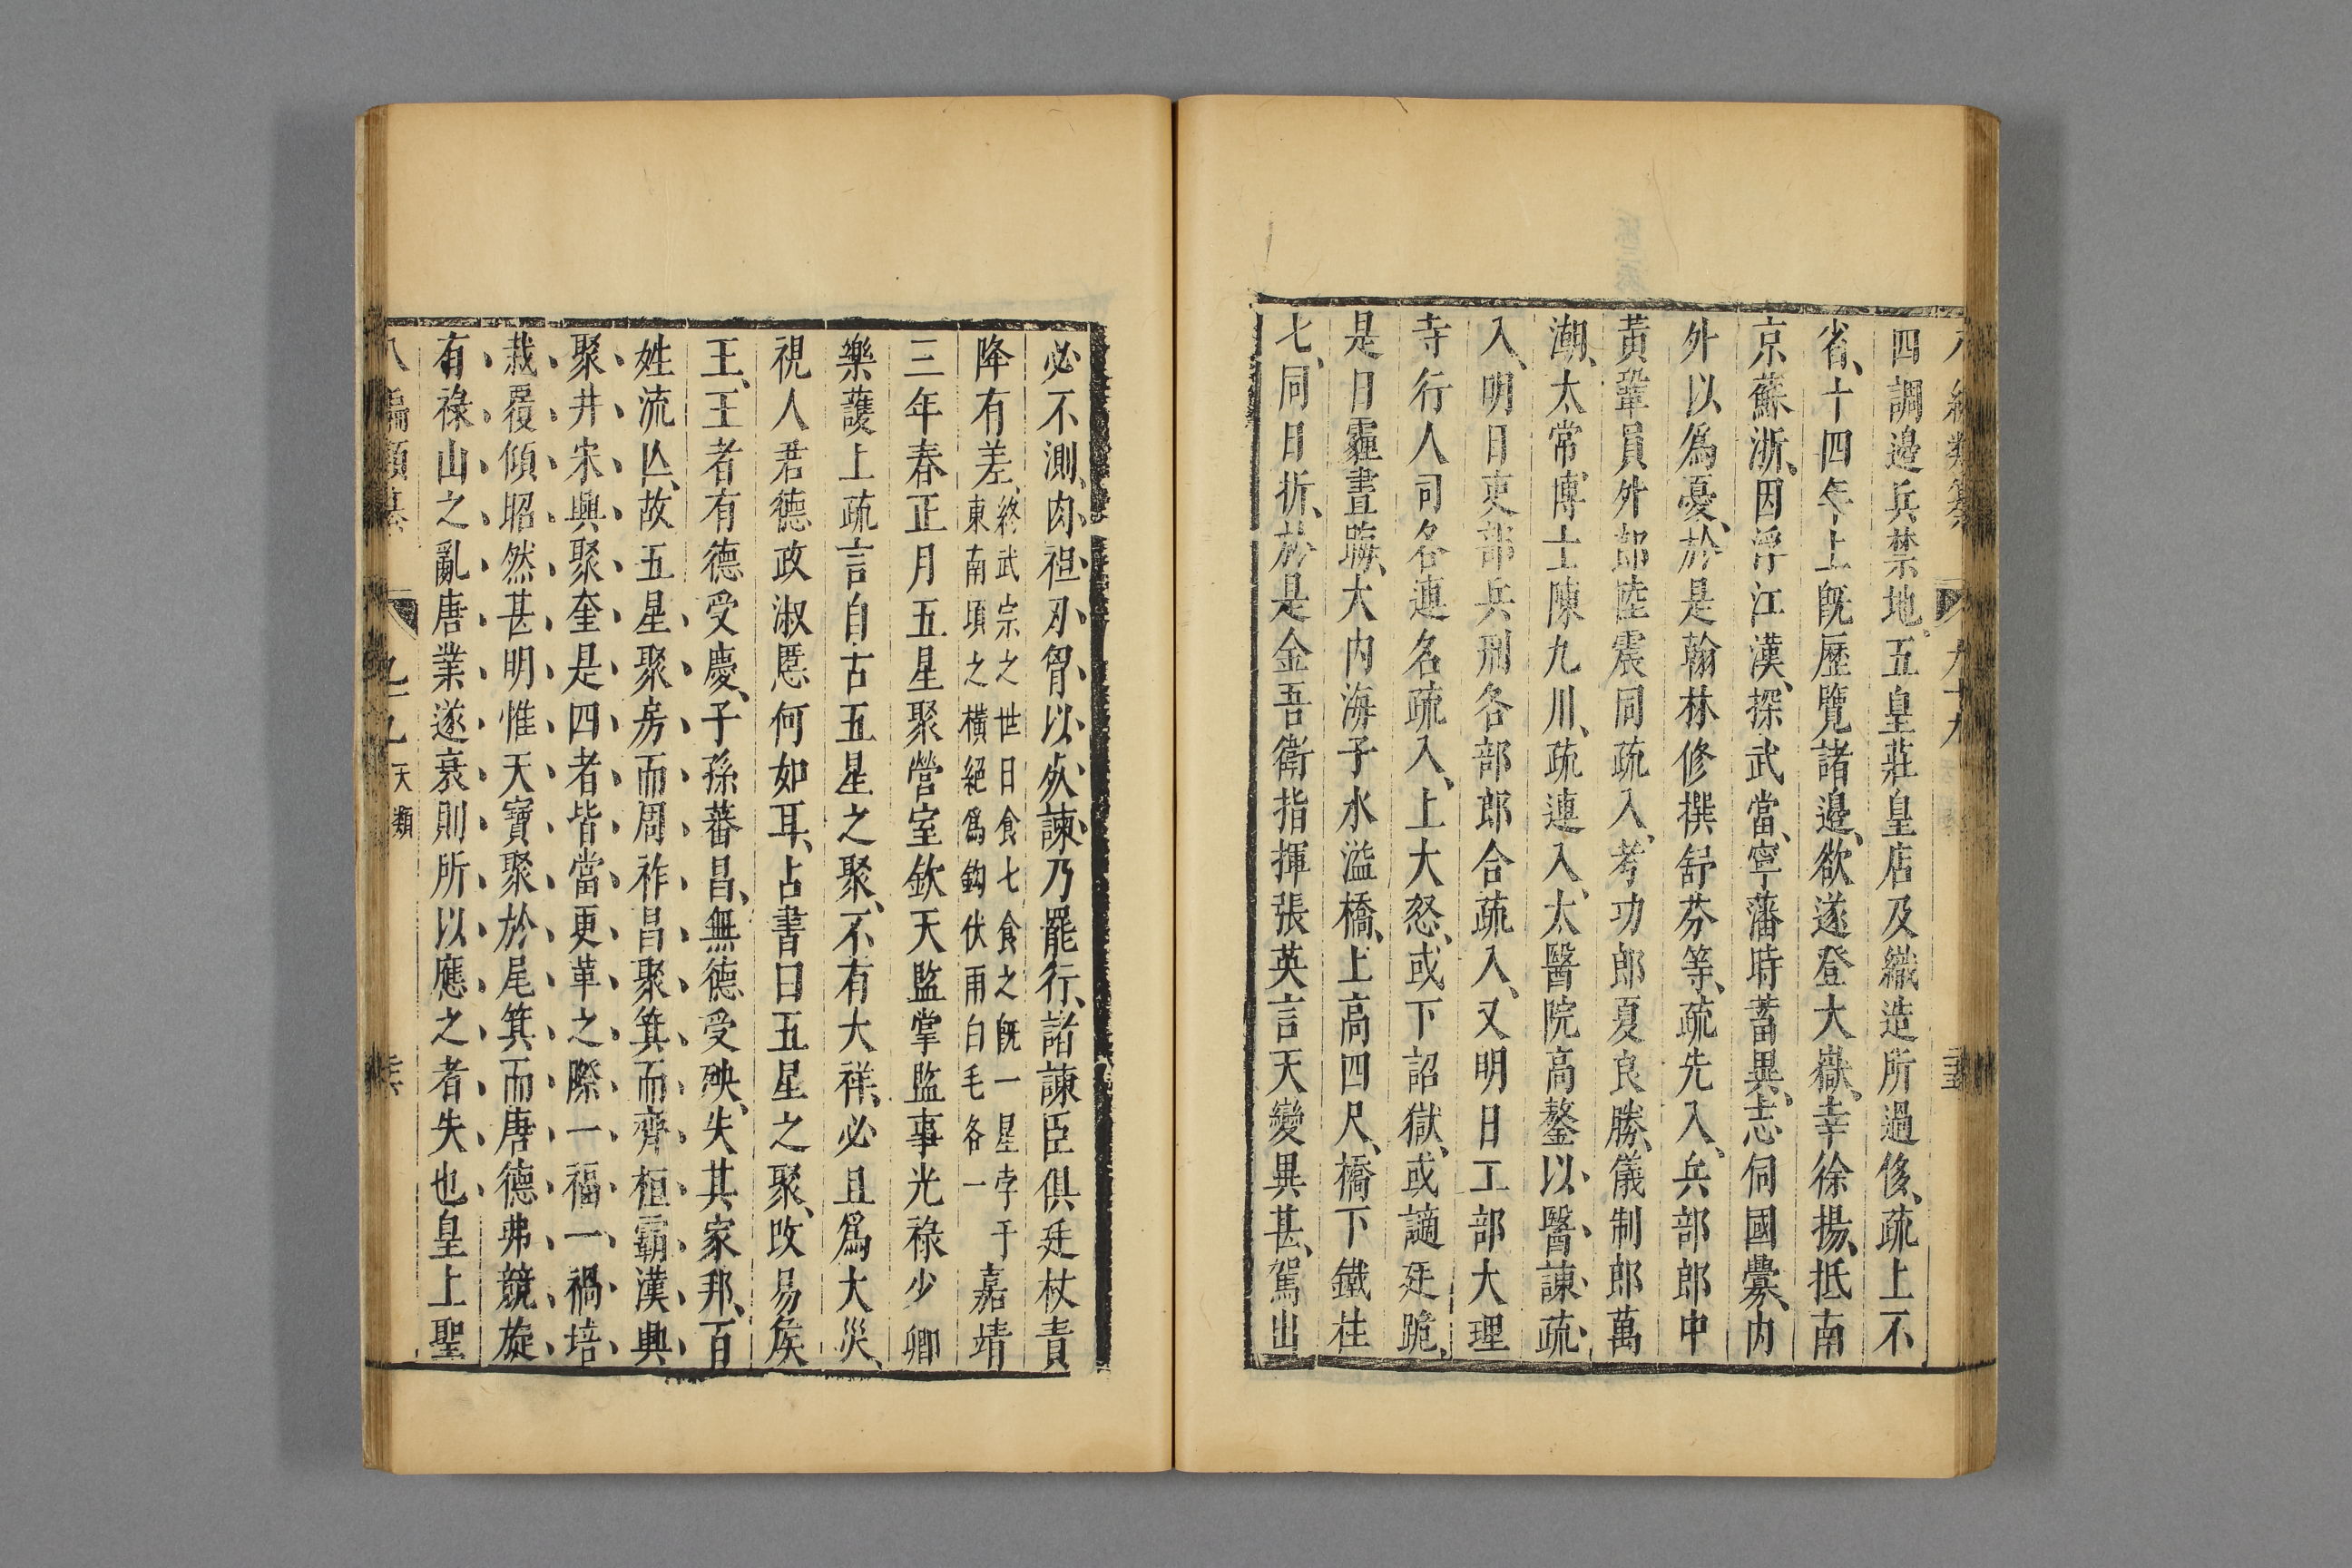 四調邊兵禁地五皇莊皇店及織造所過侈疏上不
省十四年上旣歷覽諸邊欲遂登大嶽幸徐揚抵南
京蘇浙因浮江漢探武當寧藩時蓄異志伺國釁内
外以爲憂於是翰林修撰舒芬等疏先入兵部郎中
黃鞏員外郎陸震同疏入考功郎夏良勝儀制郎萬
潮太常博士陳九川疏連入太醫院高鏊以醫諫疏
入明日吏部兵刑各部郎合疏入又明日工部大理
寺行人司各連名疏入上大怒或下詔獄或讁廷跪
是日霾晝晦大内海子水溢橋上高四尺橋下鐵柱
七同日折於是金吾衛指揮張英言天變異甚駕出
必不測肉袒刃胷以死諫乃罷行諸諫臣俱廷杖責
降有差終武宗之世日食七食之旣一星孛于東南頃之橫絕爲鈎伏雨白毛各一嘉靖
三年春正月五星聚營室欽天監掌監事光祿少卿
樂護上疏言自古五星之聚不有大祥必且爲大災
視人君德政淑慝何如耳占書曰五星之聚改易侯
王王者有德受慶子孫蕃昌無德受殃失其家邦百
姓流亾故五星聚房而周祚昌聚箕而齊桓霸漢興
聚井宋興聚奎是四者皆當更革之際一福一禍培
栽覆傾昭然甚明惟天寶聚於尾箕而唐德弗競旋
有祿山之亂唐業遂衰則所以應之者失也皇上聖
天類